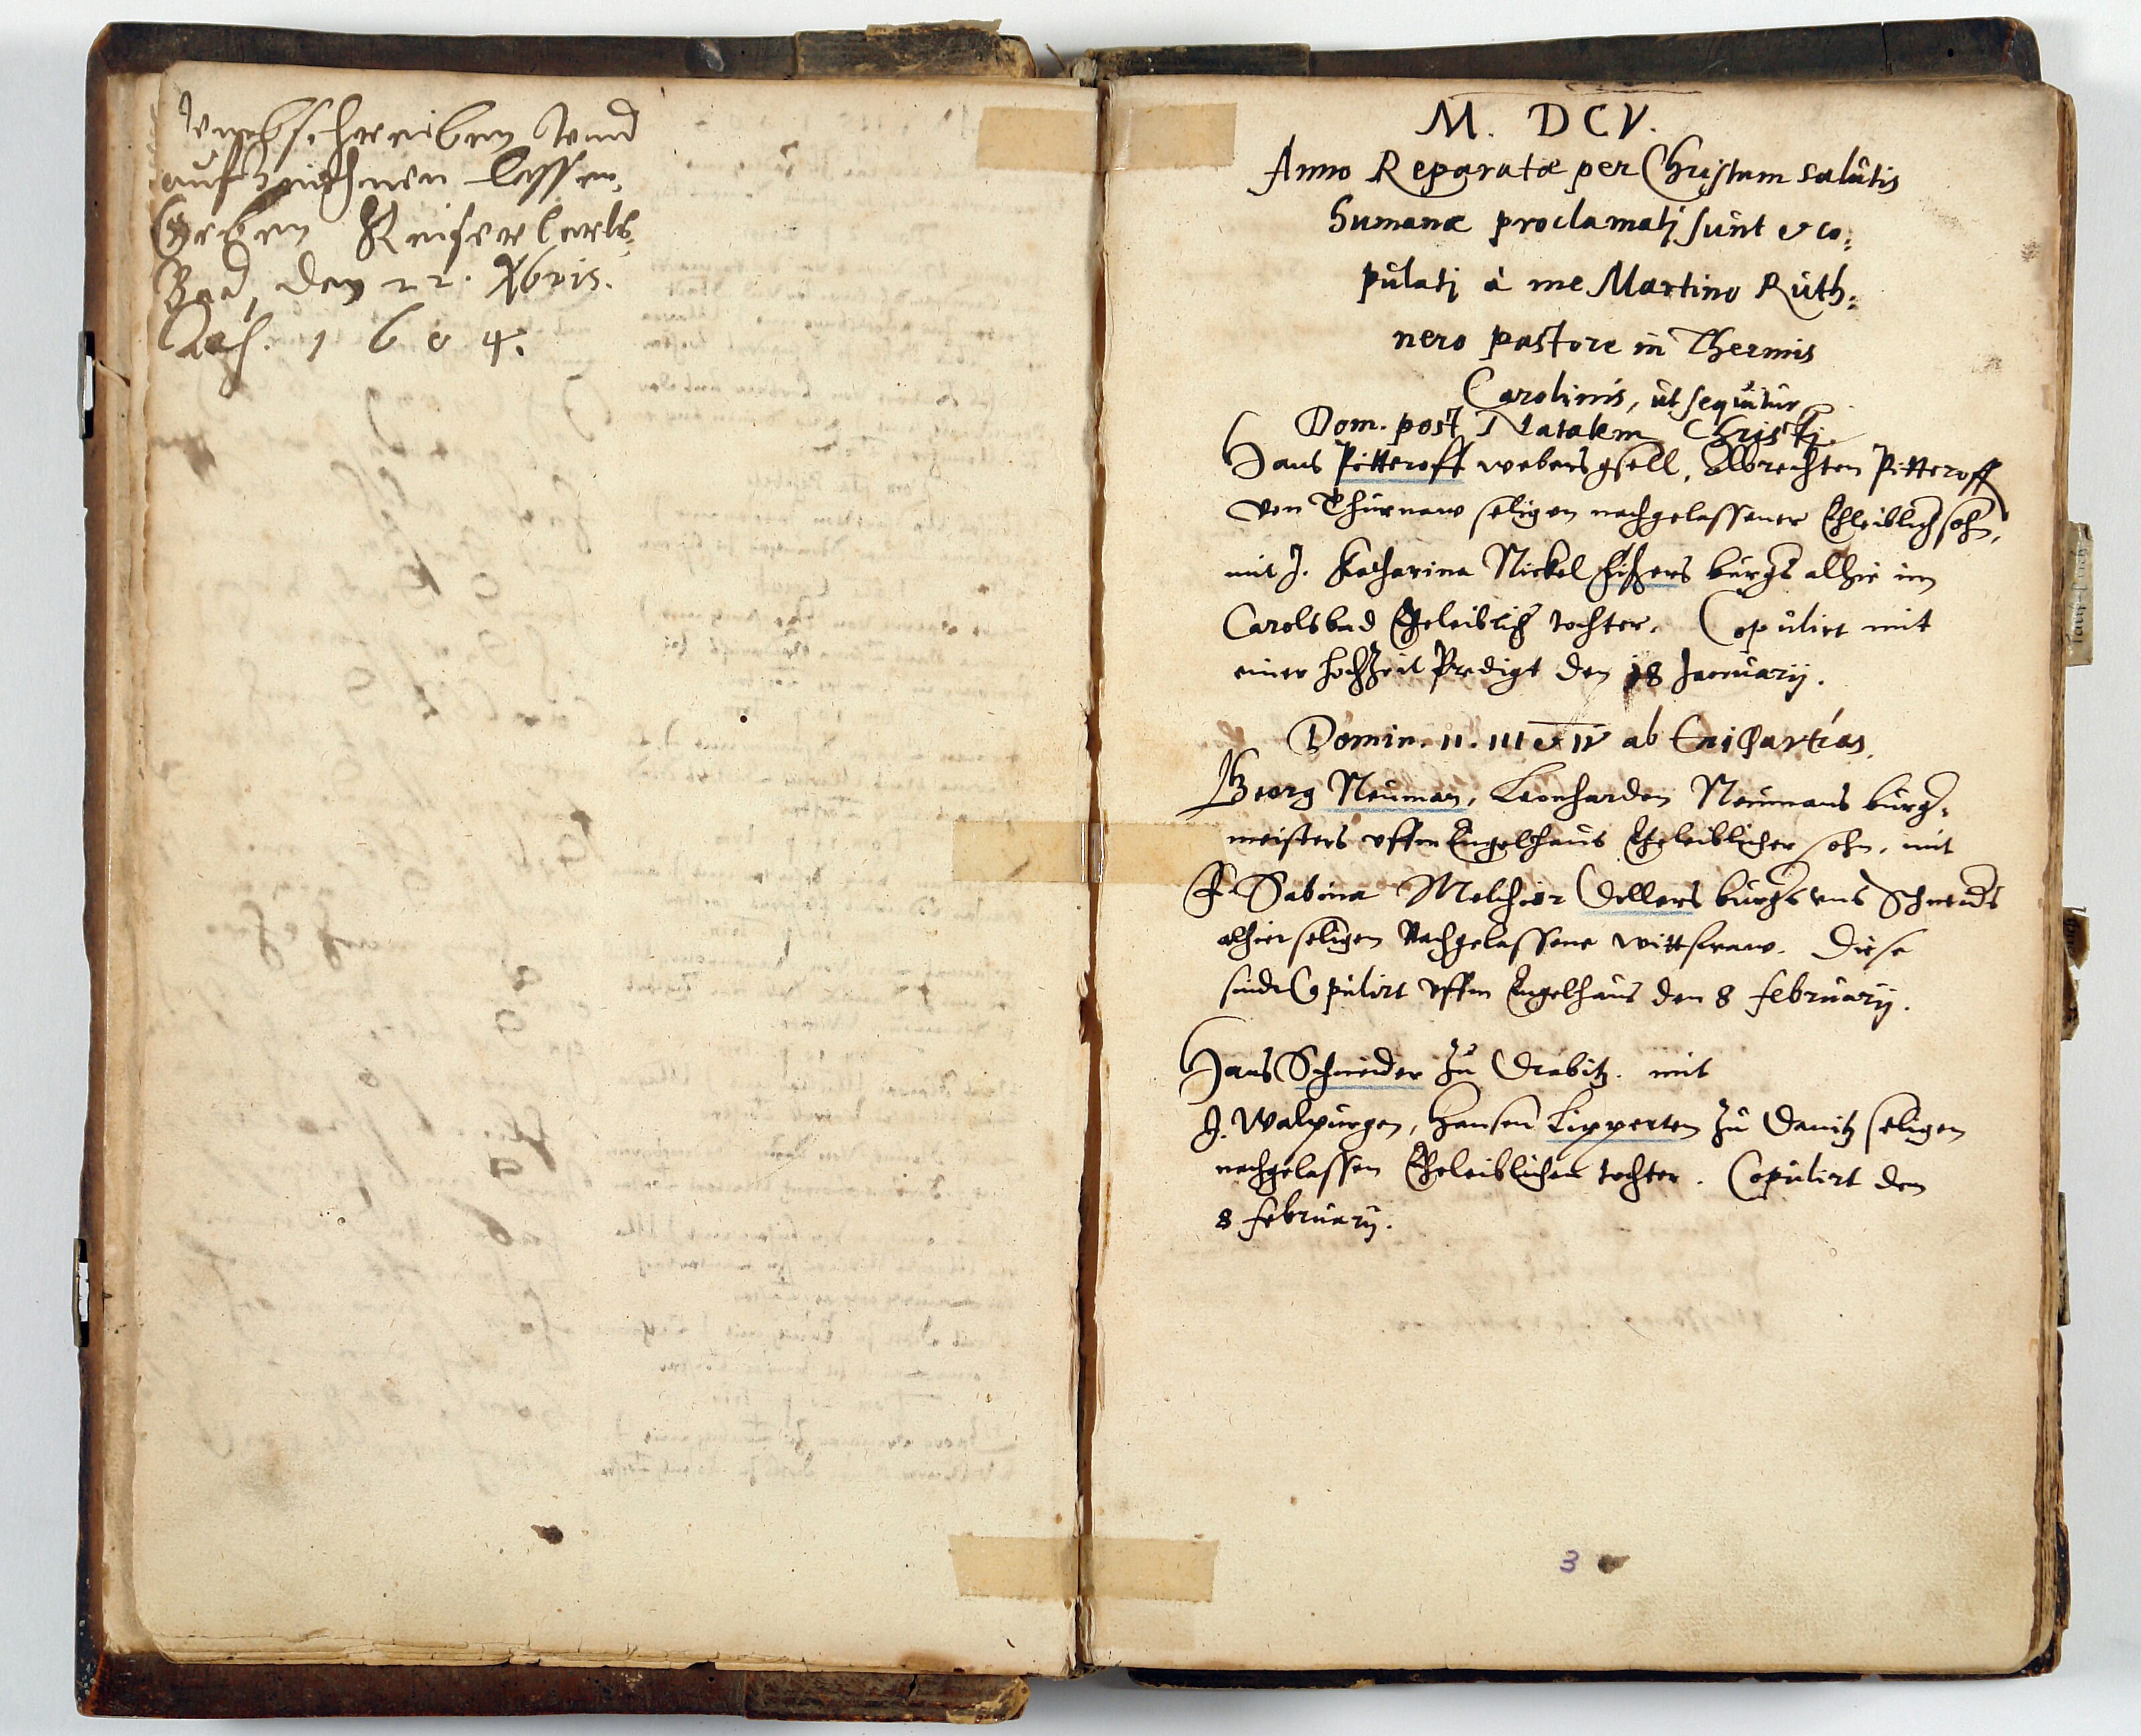 Vmbschreiben Vnnd
auffzeichnen lassen,
Geben Keiser Carls
Bad, den 22. Xbris.
Aoch. 1604.
M. DCV.
Anno Reparatæ per Christum salutis
humanæ proclamatj sunt & co=
pulatj à me Martino Ruth=
nero pastore in Thermis
Carolinis, ut sequitur
Dom. post Natalem Christj.
Hans Pitteroff webersgsell, Albrechten Pitteroff
von Thurnaw seligen nachgelassener Ehleiblich sohn,
mit J. Katharina Nickel Fischers burgs alhie im
Carolsbad Eheleiblich tochter. Copulirt mit
einer hochzeit Predigt den 18 Januarij.
Domin. II. III & IV ab Epiphanias.
Georg Neuman, Leonharden Neumans burg=
meisters vffm Engelhaus Eheleiblicher sohn, mit
F. Sabina Melchior Dellers burgs vnd Schneids
alhier seligen Nachgelassene wittfraw. Diese
sindt Copulirt vffm Engelhaus den 8 februarij.
Hans Schneider zu Drabitz. mit
J. Walpurgen, Hansen Lipperten zu Danitz seligen
nachgelassen Eheleiblichen tochter. Copulirt den
8 februarij.
3